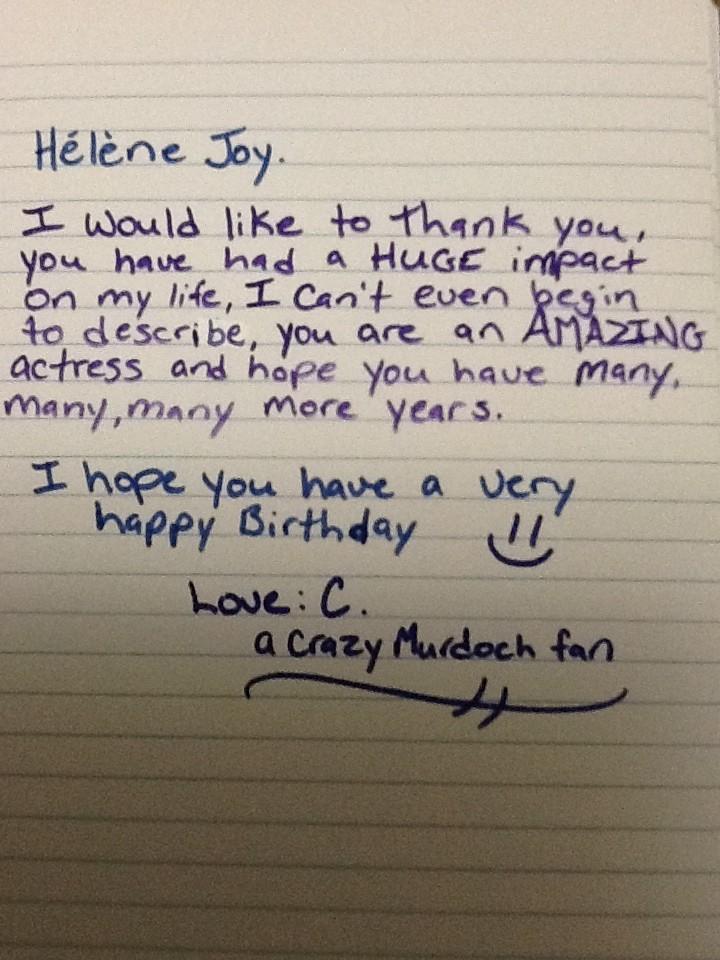 Hélène Joy.
I would like to thank you,
you have had a HUGE impact
on my life, I can't even begin
to describe, you are an AMAZING
actress and hope you have many,
many, many more years.
I hope you have a very
happy Birthday
Love: C.
a crazy Murdoch fan